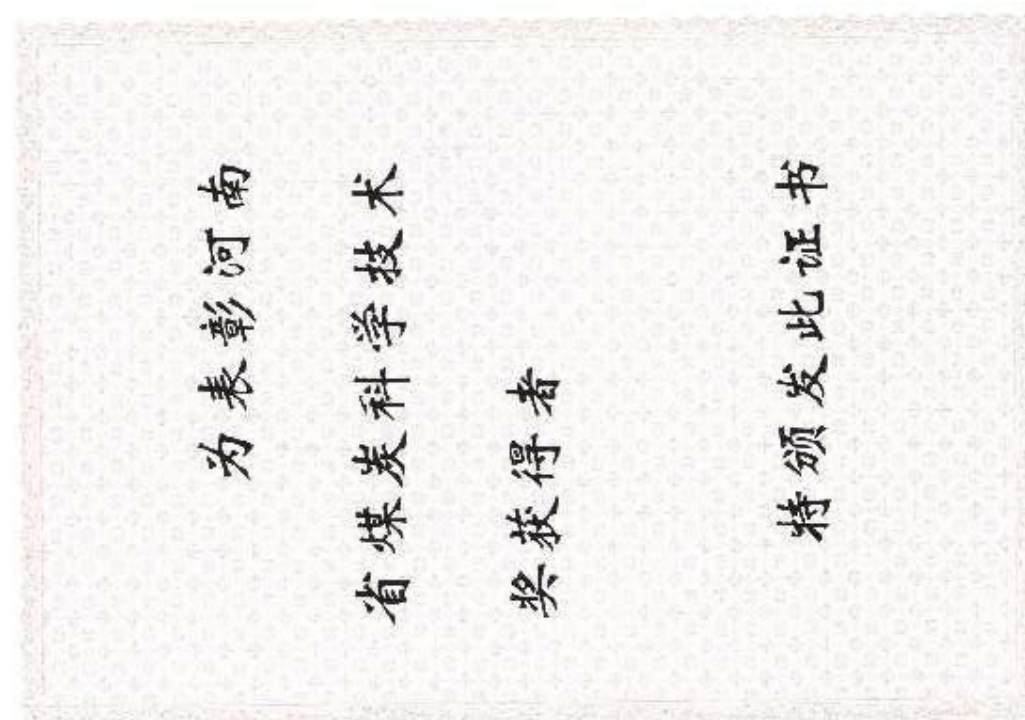 为表彰河南
省煤炭科学技术
奖获得者
特颁发此证书